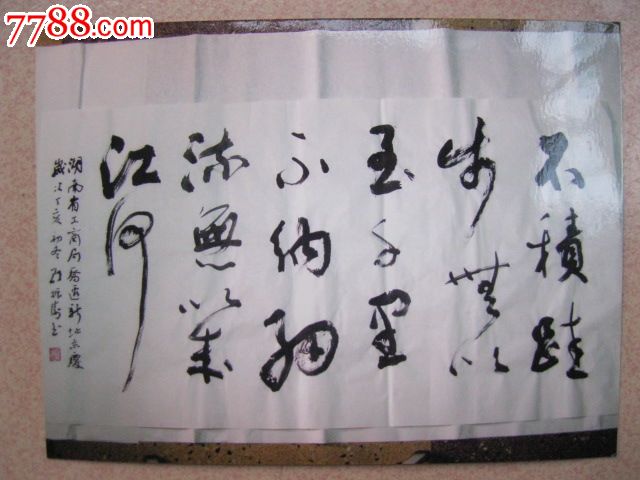 7788.com
不積跬
步無以
至千里
不納細
流無以成
江河
湖南省工商局喬遷新址志慶
歲次丁亥初冬